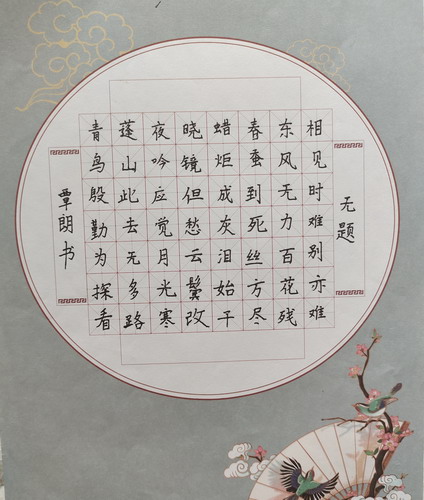 无题
相见时难别亦难
东风无力百花残
春蚕到死丝方尽
蜡炬成灰泪始干
晓镜但愁云鬓改
夜吟应觉月光寒
蓬山此去无多路
青鸟殷勤为探看
覃朗书